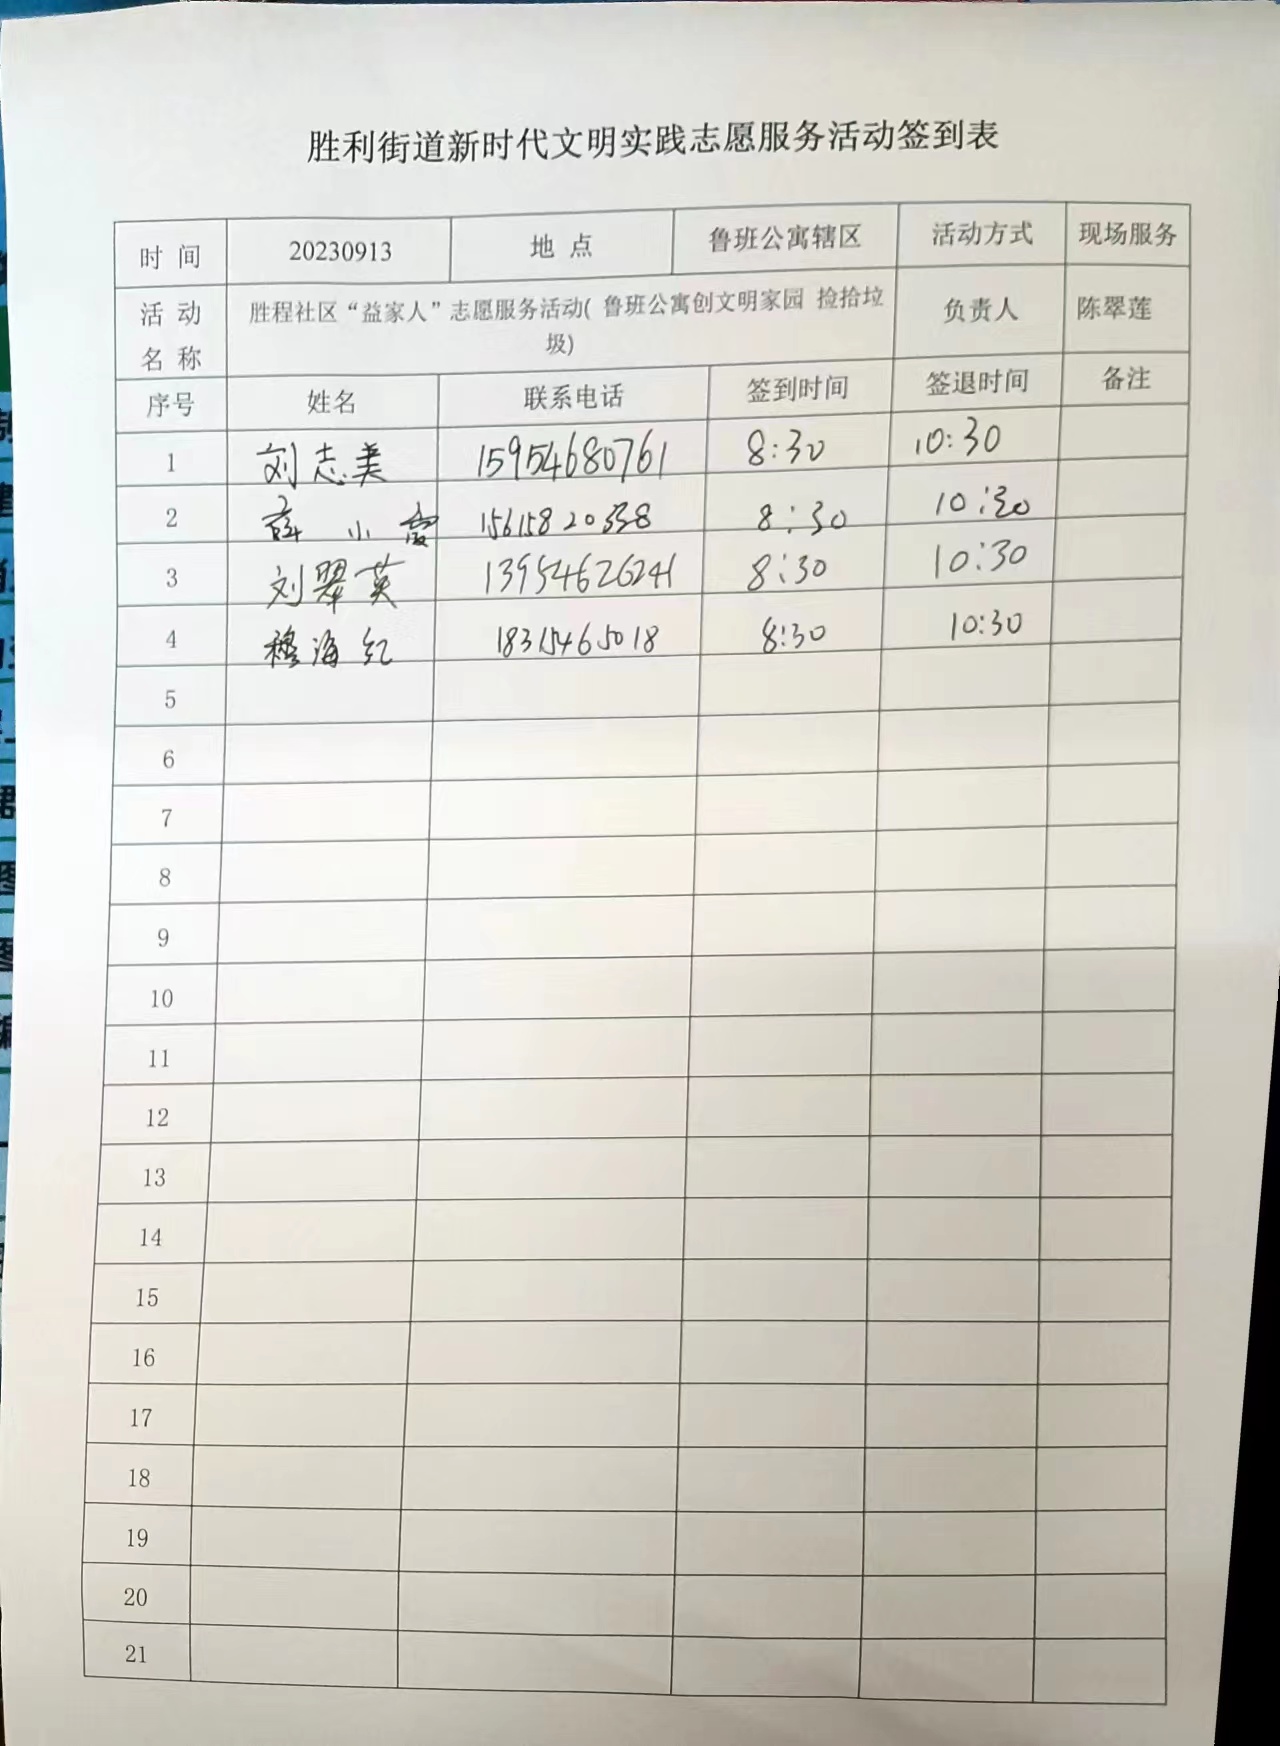 胜利街道新时代文明实践志愿服务活动签到表
时 间 20230913 地 点 鲁班公寓辖区 活动方式 现场服务
活 动 名 称 胜程社区“益家人”志愿服务活动( 鲁班公寓创文明家园 捡拾垃 负责人 陈翠莲
圾)
序号 姓名 联系电话 签到时间 签退时间 备注
1 刘志美 15954680761 8:30 10:30
2 薛小霞 15615820338 8:30 10:30
3 刘翠英 13954626241 8:30 10:30
4 穆海红 18315465018 8:30 10:30
5
6
7
8
9
10
11
12
13
14
15
16
17
18
19
20
21